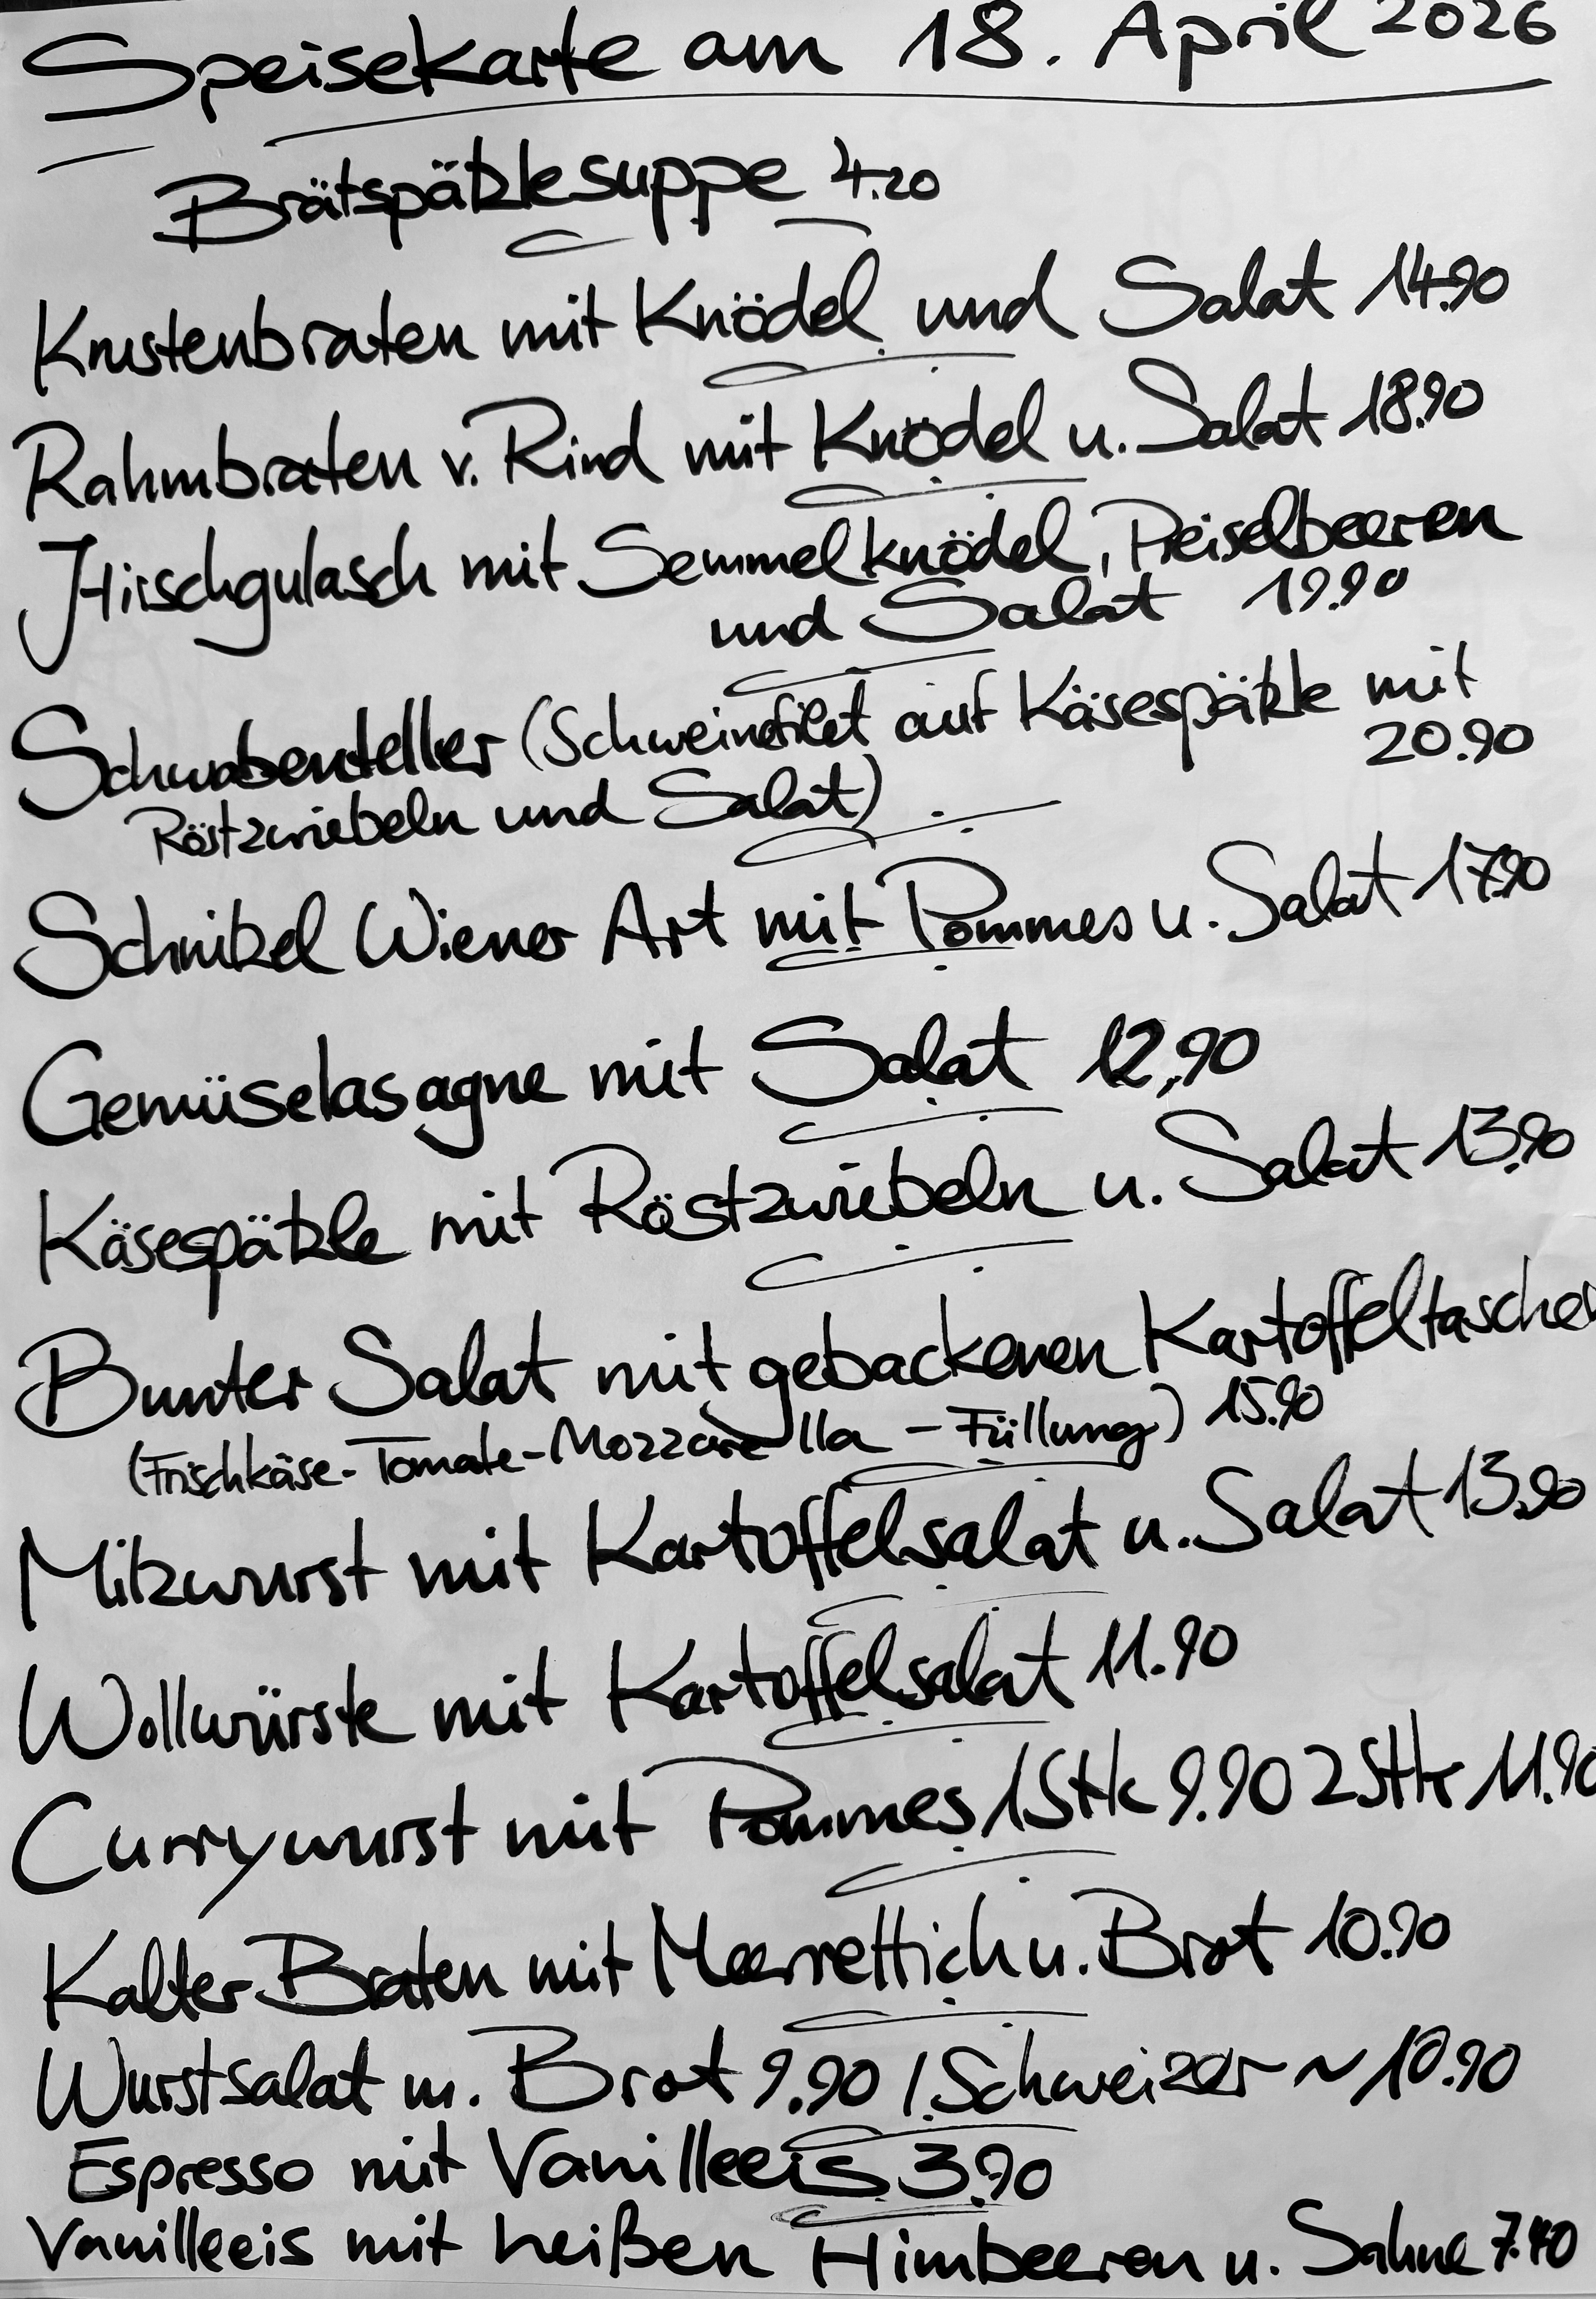 Speisekarte am 18. April 2026
Brätspätzlesuppe 4.20
Krustenbraten mit Knödel und Salat 14.90
Rahmbraten v. Rind mit Knödel u. Salat 18.90
Hirschgulasch mit Semmelknödel, Preiselbeeren
und Salat 19.90
Schwabenteller (Schweinefilet auf Käsespätzle mit
20.90
Röstzwiebeln und Salat)
Schnitzel Wiener Art mit Pommes u. Salat 17.90
Gemüselasagne mit Salat 12,90
Käsespätzle mit Röstzwiebeln u. Salat 13.90
Bunter Salat mit gebackenen Kartoffeltaschen
(Frischkäse-Tomate-Mozzarella-Füllung) 15.90
Milzwurst mit Kartoffelsalat u. Salat 13.90
Wollwürste mit Kartoffelsalat 11.90
Currywurst mit Pommes 1Stk 9.90 2Stk 11.90
Kalter Braten mit Meerrettich u. Brot 10.90
Wurstsalat m. Brot 9.90 / Schweizer ~ 10.90
Espresso mit Vanilleeis 3.90
Vanilleeis mit heißen Himbeeren u. Sahne 7.40